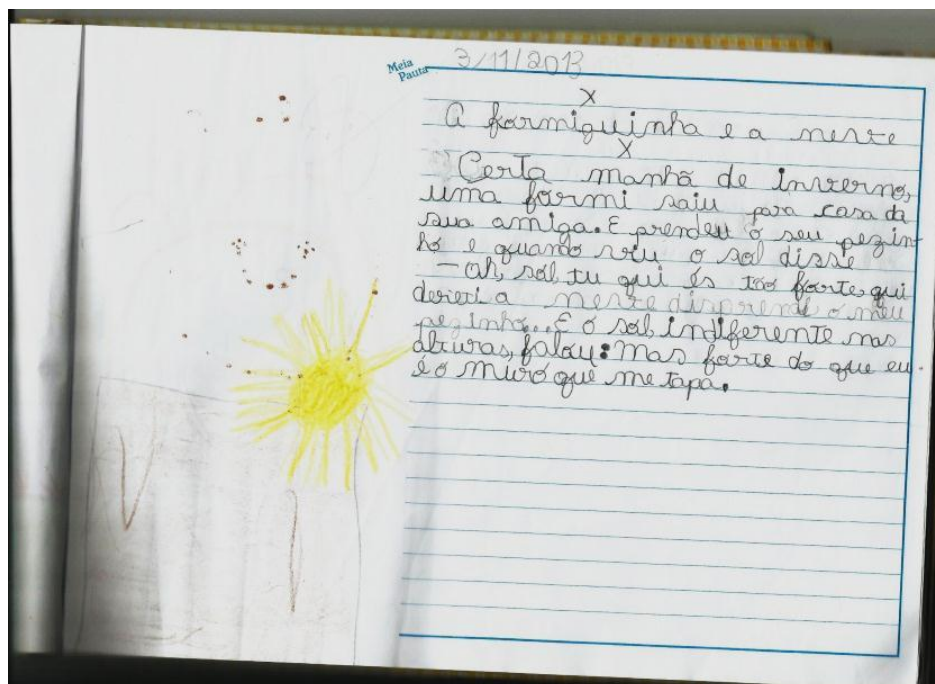 Meia
Pauta
3/11/2013
X
A formiguinha e a neve
X
Certa manhã de inverno,
uma formi saiu para casa da
sua amiga. E prendeu o seu pezin-
ho e quando viu o sol disse
- Ah, sol, tu qui és tão forte, qui
derieti a neve disprende o meu
pezinho... E o sol, indiferente nas
alturas, falou: mas forte do que eu
é o muro que me tapa.